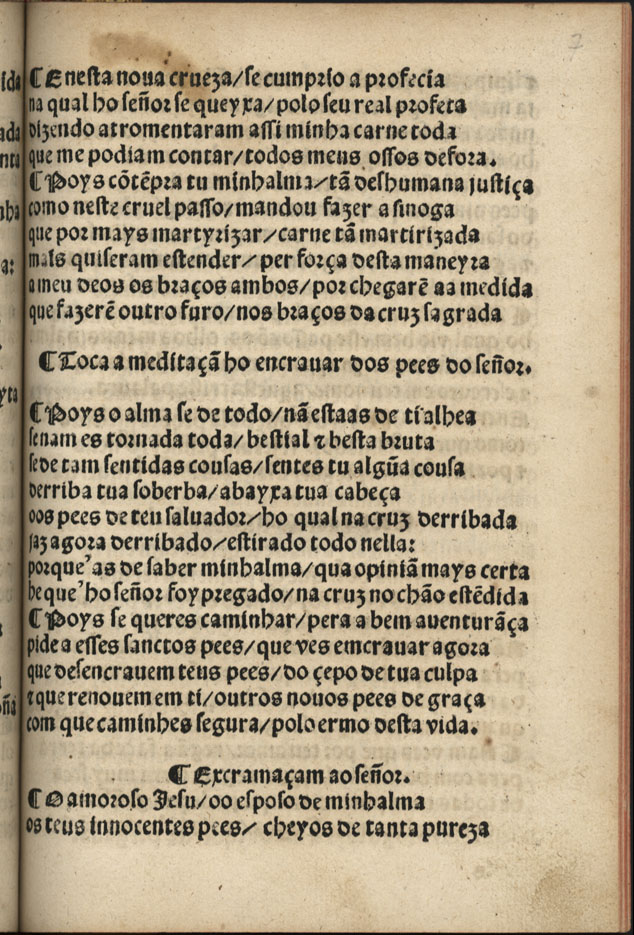 ¶ E nesta noua crueza/se cumprio a profecia
na qual ho señor se queyxa/polo seu real profeta
dizendo atromentaram assi minha carne toda
que me podiam contar/todos meus ossos defora.
¶ Poys cōtēpra tu minhalma/tã deshumana justiça
como neste cruel passo/mandou fazer a sinoga
que por mays martyrizar/carne tã martirizada
mais quiseram estender/per força desta maneyra
a meu deos os braços ambos/por chegarē aa medida
que fazerē outro furo/nos braços da cruz sagrada
¶ Toca a meditaçã ho encrauar dos pees do señor.
¶ Poys o alma se de todo/nã estaas de ti alhea
senam es tornada toda/bestial ⁊ besta bruta
se de tam sentidas cousas/sentes tu algũa cousa
derriba tua soberba/abayxa tua cabeça
oos pees de teu saluador/ho qual na cruz derribada
jaz agora derribado/estirado todo nella:
porque' as de saber minhalma/qua opiniã mays certa
he que' ho señor foy pregado/na cruz no chão estēdida
¶ Poys se queres caminhar/pera a bem auenturãça
pide a esses sanctos pees/que ves emcrauar agora
que desencrauem teus pees/do çepo de tua culpa
⁊ que renouem em ti/outros nouos pees de graça
com que caminhes segura/polo ermo desta vida.
¶ Excramaçam ao señor.
¶ O amoroso Jesu/oo esposo de minhalma
os teus innocentes pees/ cheyos de tanta pureza